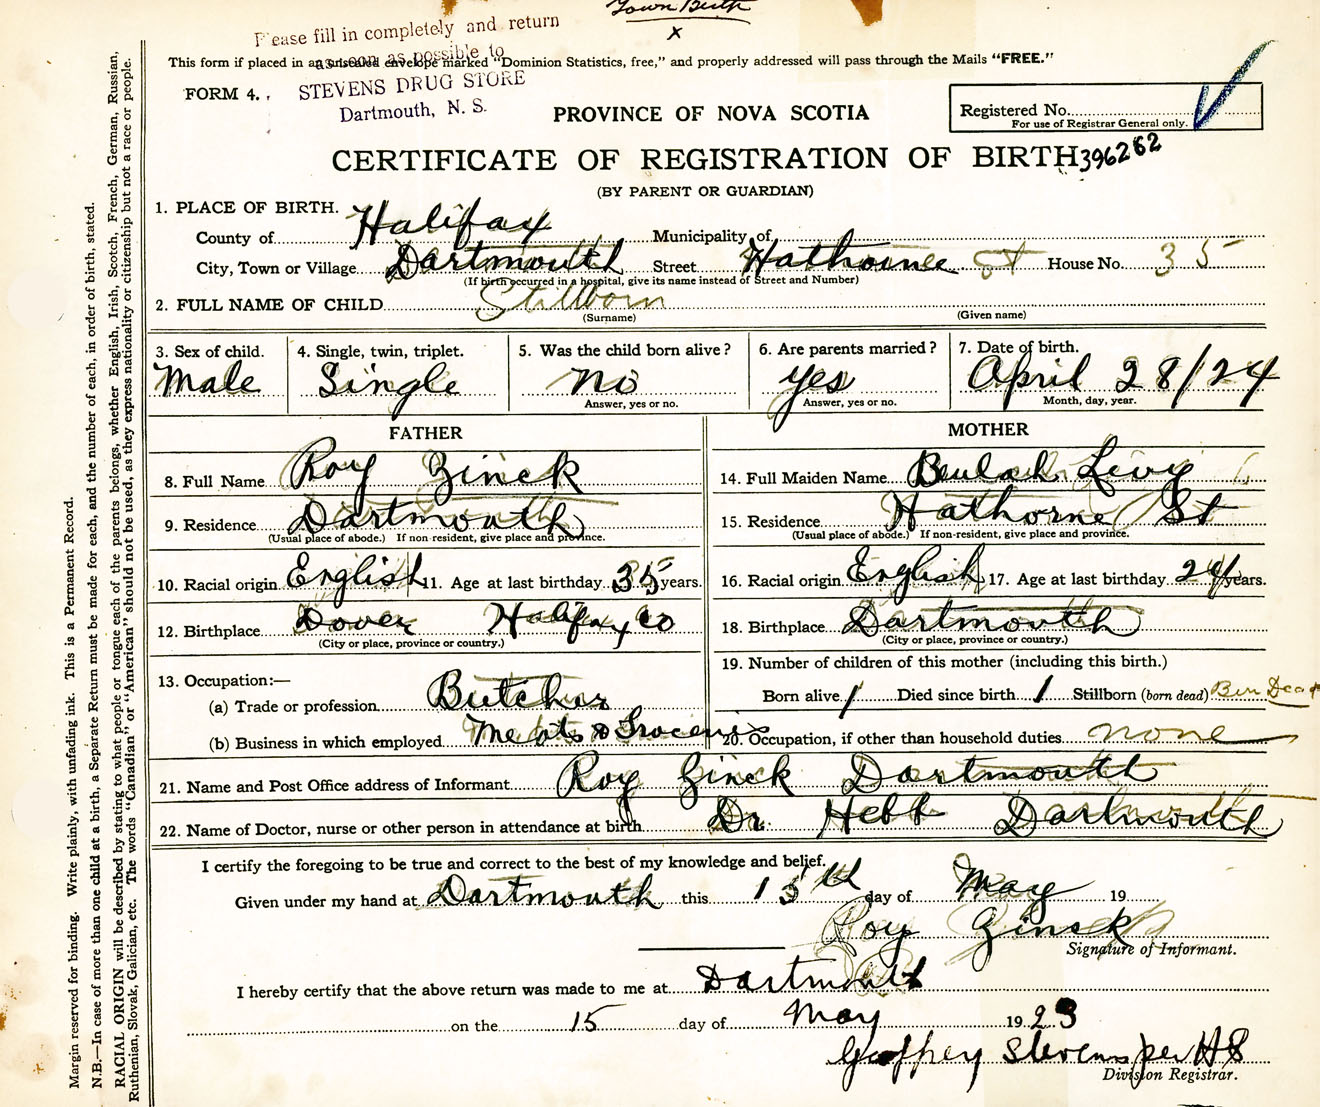 Town Birth
x
Please fill in completely and return
as soon as possible to
This form if placed in an unsealed envelope marked "Dominion Statistics, free," and properly addressed will pass through the Mails "FREE."
STEVENS DRUG STORE
Dartmouth, N. S.
FORM 4.
PROVINCE OF NOVA SCOTIA
Registered No.
For use of Registrar General only.
CERTIFICATE OF REGISTRATION OF BIRTH 396262
(BY PARENT OR GUARDIAN)
1. PLACE OF BIRTH.
County of Halifax Municipality of
City, Town or Village Dartmouth Street Hathornee St House No. 35
(If birth occurred in a hospital, give its name instead of Street and Number)
2. FULL NAME OF CHILD Stillborn
(Surname) (Given name)
3. Sex of child. 4. Single, twin, triplet. 5. Was the child born alive? 6. Are parents married? 7. Date of birth.
Male Single no yes April 28/24
Answer, yes or no. Answer, yes or no. Month, day, year.
FATHER
8. Full Name Roy Zinck
9. Residence Dartmouth
(Usual place of abode.) If non-resident, give place and province.
10. Racial origin English 11. Age at last birthday 35 years.
12. Birthplace Dover Halifax Co
(City or place, province or country.)
13. Occupation:—
(a) Trade or profession Butcher
(b) Business in which employed Meats & Groceries
MOTHER
14. Full Maiden Name Beulah Levy
15. Residence Hathorne St
(Usual place of abode.) If non-resident, give place and province.
16. Racial origin English 17. Age at last birthday 24 years.
18. Birthplace Dartmouth
(City or place, province or country.)
19. Number of children of this mother (including this birth.)
Born alive 1 Died since birth 1 Stillborn (born dead) Born Dead
20. Occupation, if other than household duties none
21. Name and Post Office address of Informant Roy Zinck Dartmouth
22. Name of Doctor, nurse or other person in attendance at birth Dr. Hebb Dartmouth
I certify the foregoing to be true and correct to the best of my knowledge and belief.
Given under my hand at Dartmouth this 15th day of May 19
Roy Zinck
Signature of Informant.
I hereby certify that the above return was made to me at Dartmouth
on the 15 day of May 1923
Geoffrey Stevens per HS
Division Registrar.
Margin reserved for binding. Write plainly, with unfading ink. This is a Permanent Record.
N.B.—In case of more than one child at a birth, a Separate Return must be made for each, and the number of each, in order of birth, stated.
RACIAL ORIGIN will be described by stating to what people or tongue each of the parents belongs, whether English, Irish, Scotch, French, German, Russian,
Ruthenian, Slovak, Galician, etc. The words "Canadian" or "American" should not be used, as they express nationality or citizenship but not a race or people.